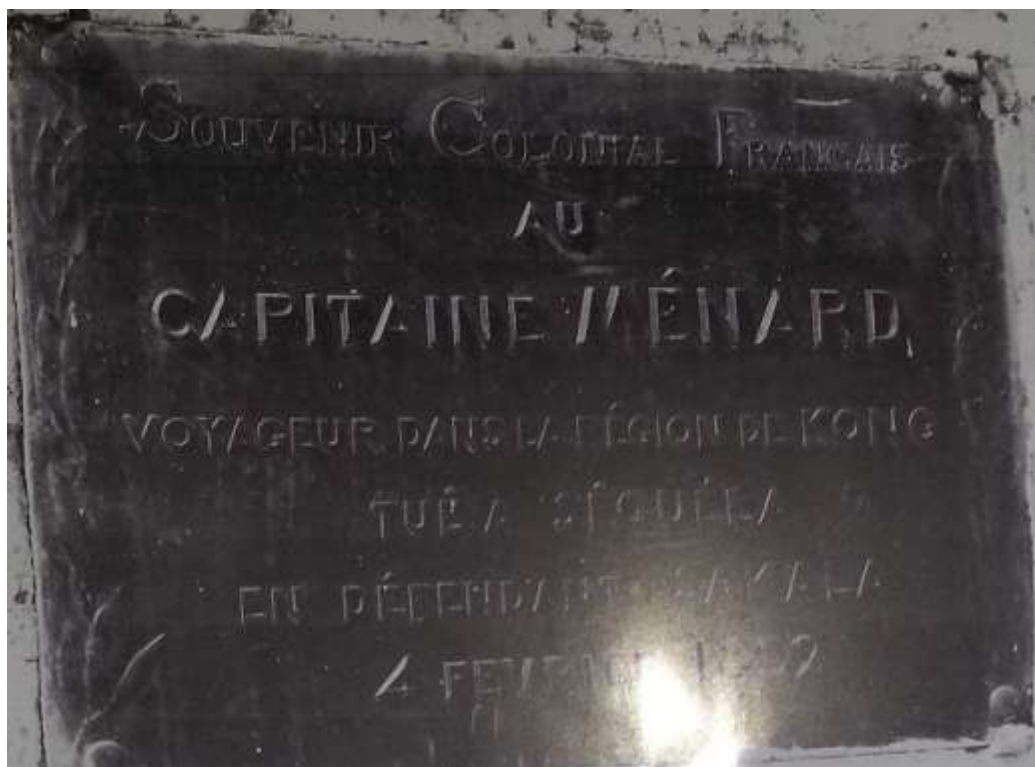 SOUVENIR COLONIAL FRANCAIS
AU
CAPITAINE MÉNARD,
VOYAGEUR DANS LA RÉGION DE KONG
TUÉ A SÉGUÉLA
EN DÉFENDANT SAKALA
4 FEVRIER